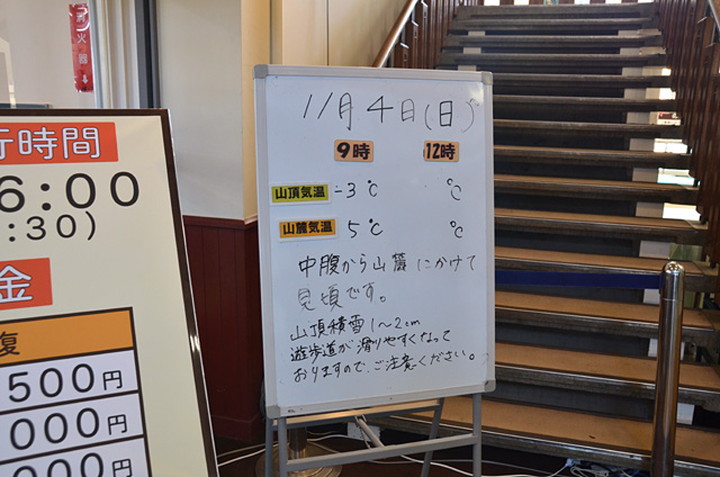 火
器
行時間
6:00
:30)
金
復
500円
000円
000円
11月4日(日)
9時 12時
山頂気温 -3℃ ℃
山麓気温 5℃ ℃
中腹から山麓にかけて
見頃です。
山頂積雪1~2cm
遊歩道が滑りやすくなって
おりますので、ご注意ください。